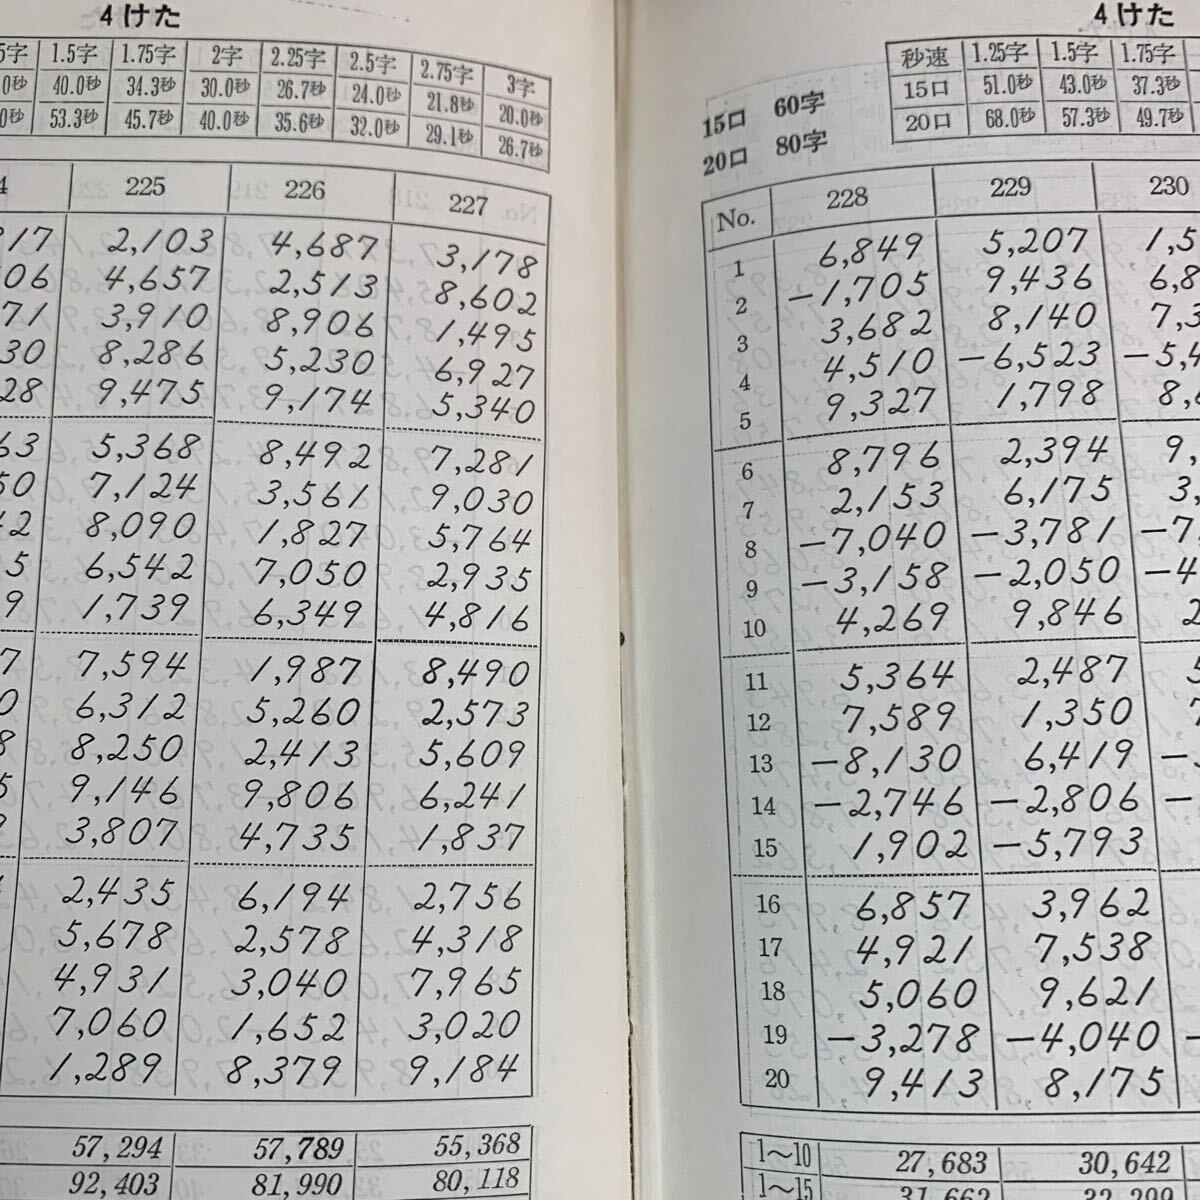 4けた
1.5字 1.75字 2字 2.25字 2.5字 2.75字 3字
40.0秒 34.3秒 30.0秒 26.7秒 24.0秒 21.8秒 20.0秒
53.3秒 45.7秒 40.0秒 35.6秒 32.0秒 29.1秒 26.7秒
225 226 227
2,103 4,687 3,178
4,657 2,513 8,602
3,910 8,906 1,495
8,286 5,230 6,927
9,475 9,174 5,340
5,368 8,492 7,281
7,124 3,561 9,030
8,090 1,827 5,764
6,542 7,050 2,935
1,739 6,349 4,816
7,594 1,987 8,490
6,312 5,260 2,573
8,250 2,413 5,609
9,146 9,806 6,241
3,807 4,735 1,837
2,435 6,194 2,756
5,678 2,578 4,318
4,931 3,040 7,965
7,060 1,652 3,020
1,289 8,379 9,184
57,294 57,789 55,368
92,403 81,990 80,118
4けた
15口 60字
20口 80字
秒速 1.25字 1.5字 1.75字
15口 51.0秒 43.0秒 37.3秒
20口 68.0秒 57.3秒 49.7秒
No. 228 229 230
1 6,849 5,207 1,5
2 -1,705 9,436 6,8
3 3,682 8,140 7,3
4 4,510 -6,523 -5,4
5 9,327 1,798 8,6
6 8,796 2,394 9,
7 2,153 6,175 3,
8 -7,040 -3,781 -7,
9 -3,158 -2,050 -4
10 4,269 9,846 2
11 5,364 2,487 5
12 7,589 1,350 7
13 -8,130 6,419 -3
14 -2,746 -2,806 -
15 1,902 -5,793
16 6,857 3,962
17 4,921 7,538
18 5,060 9,621
19 -3,278 -4,040 -
20 9,413 8,175
1~10 27,683 30,642
1~15 31,662 32,299